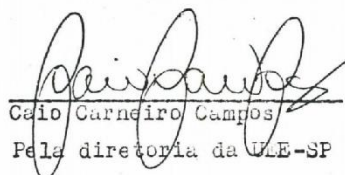 Caio Carneiro Campos
Pela diretoria da UEE-SP